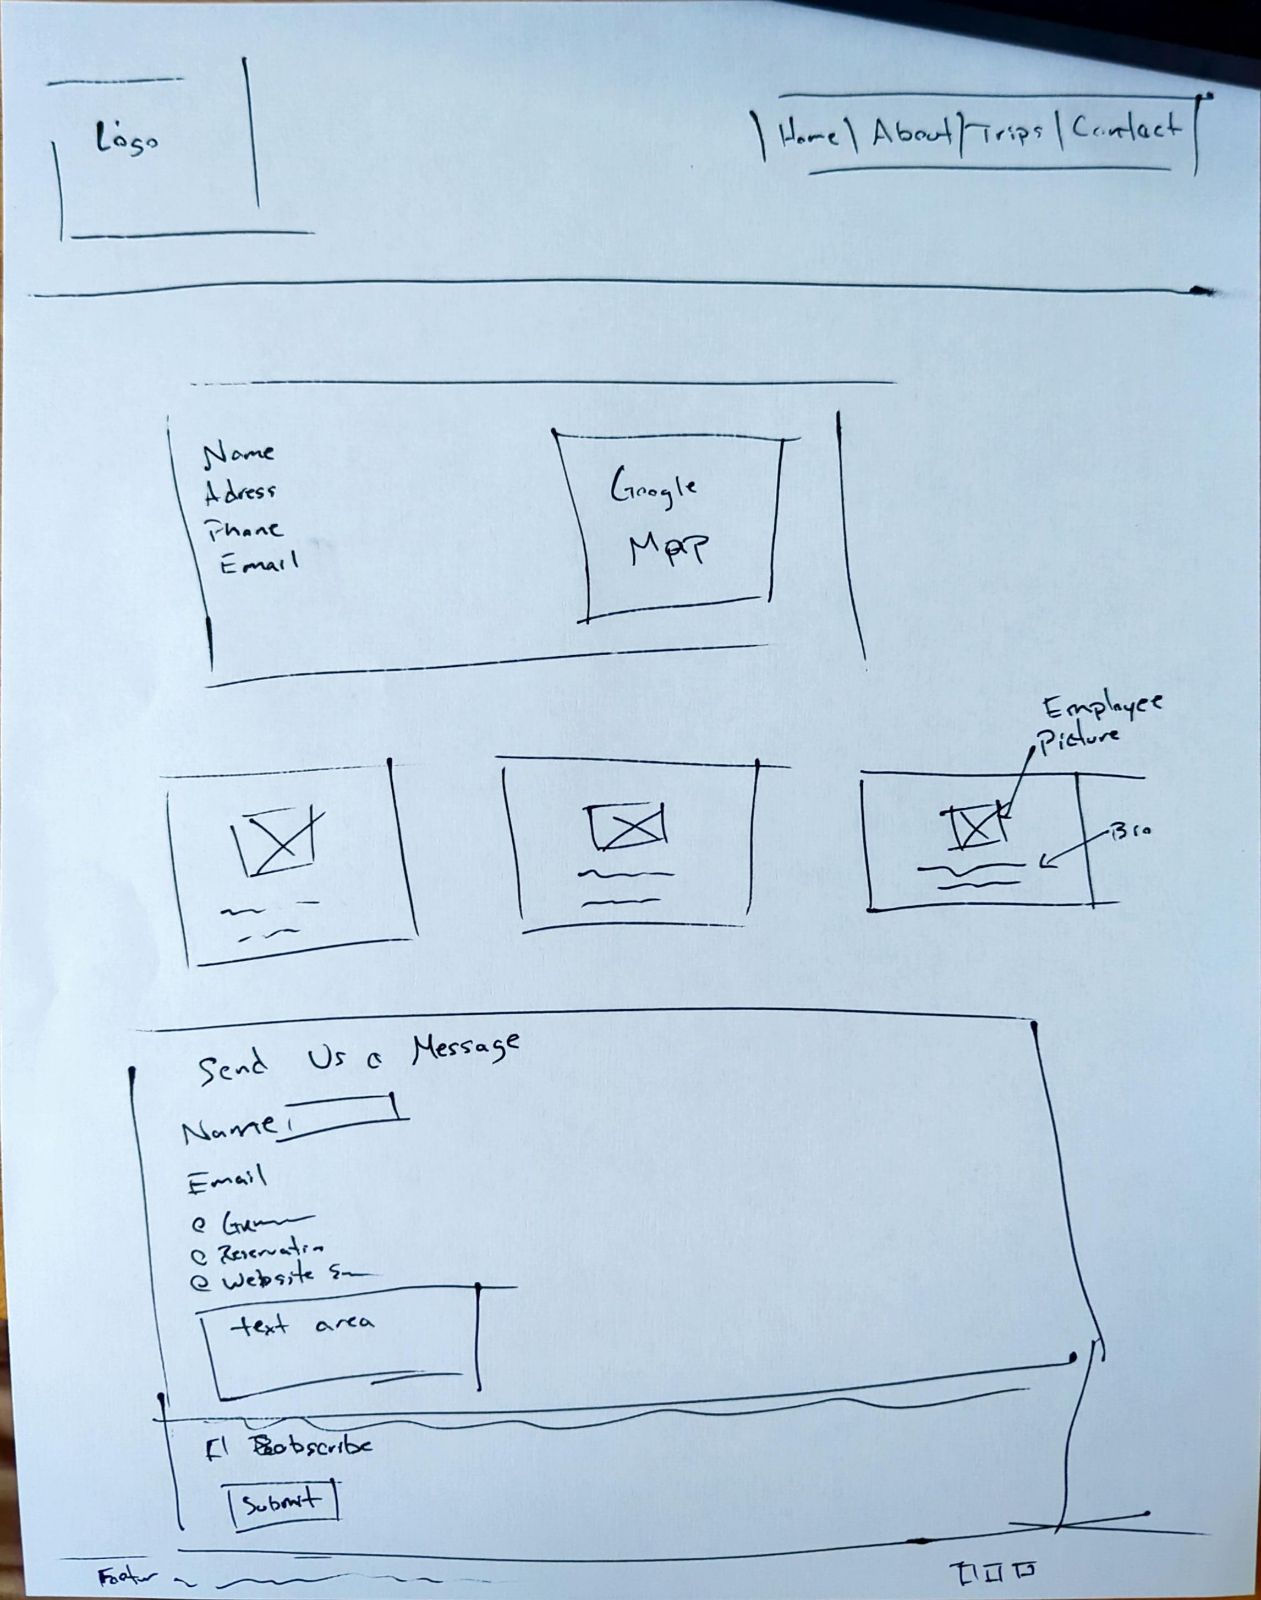 Logo
Home About Trips Contact
Name
Adress
Phone
Email
Google
Map
Employee
Picture
Bio
Send Us a Message
Name
Email
Reservation
Website
text area
Subscribe
Submit